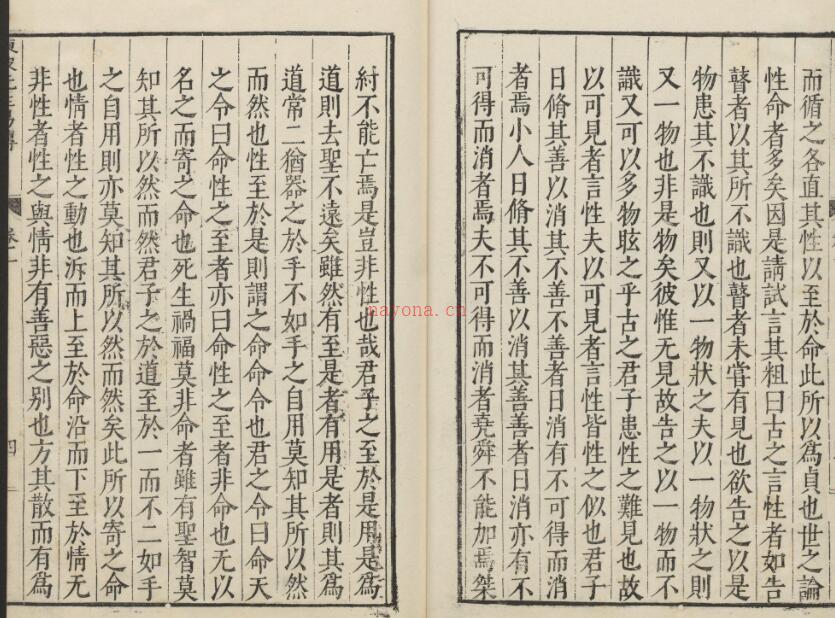 而循之各直其性以至於命此所以為貞也世之論
性命者多矣因是請試言其粗曰古之言性者如告
瞽者以其所不識也瞽者未嘗有見也欲告之以是
物患其不識也則又以一物狀之夫以一物狀之則
又一物也非是物矣彼惟无見故告之以一物而不
識又可以多物眩之乎古之君子患性之難見也故
以可見者言性夫以可見者言性皆性之似也君子
日脩其善以消其不善不善者日消有不可得而消
者焉小人日脩其不善以消其善善者日消亦有不
可得而消者焉夫不可得而消者堯舜不能加焉桀
紂不能亡焉是豈非性也哉君子之至於是用是為
道則去聖不遠矣雖然有至是者有用是者則其為
道常二猶器之於手不如手之自用莫知其所以然
而然也性至於是則謂之命命令也君之令曰命天
之令曰命性之至者亦曰命性之至者非命也无以
名之而寄之命也死生禍福莫非命者雖有聖智莫
知其所以然而然君子之於道至於一而不二如手
之自用則亦莫知其所以然而然矣此所以寄之命
也情者性之動也泝而上至於命沿而下至於情无
非性者性之與情非有善惡之别也方其散而有為
卷一
四
nayona.cn